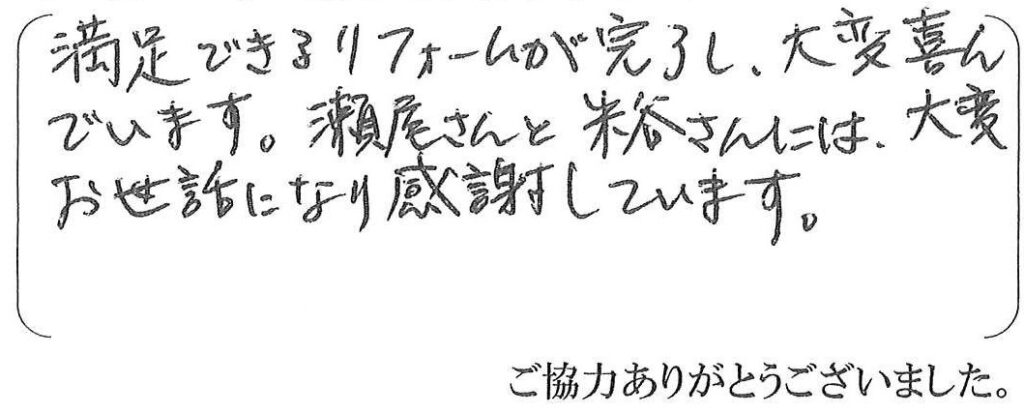 満足できるリフォームが完了し、大変喜ん
でいます。瀬尾さんと米谷さんには、大変
お世話になり感謝しています。
ご協力ありがとうございました。